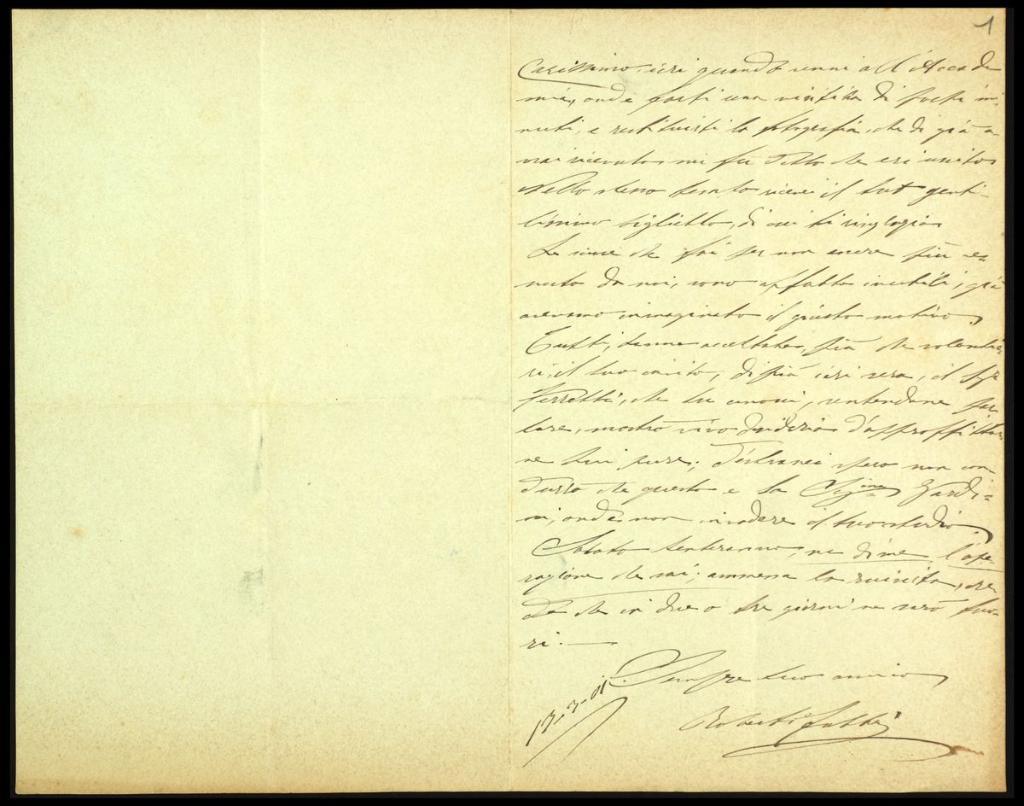 1
Carissimo, ieri quando venni all'Accade
mia, onde farti una visita di pochi mi-
nuti, e restituirti la fotografia, che di già a-
vrai ricevuto, mi fu detto che eri uscito
Nello stesso tempo ricevei il tuo genti-
lissimo biglietto, di cui ti ringrazio
Le scuse che fai per non essere più ve-
nuto da noi, sono affatto inutili, già
avevamo immaginato il giusto motivo
Tutti, hanno accettato, più che volentie
ri, il tuo invito, di più ieri sera, il Sigr
Ferretti, che tu conosci, sentendone par
lare, mostrò vivo desiderio d'approffittar
ne lui pure; d'estranei spero non con
durrò che questo e la Sigina Zardi-
ni, onde non invadere il tuo studio
Sabato tenteranno, ne di me, l'ope-
razione; ammessa la riuscita, cre
do che in due o tre giorni ne sarò fuo-
ri. —
Sempre tuo amico
13-3-01
Roberto